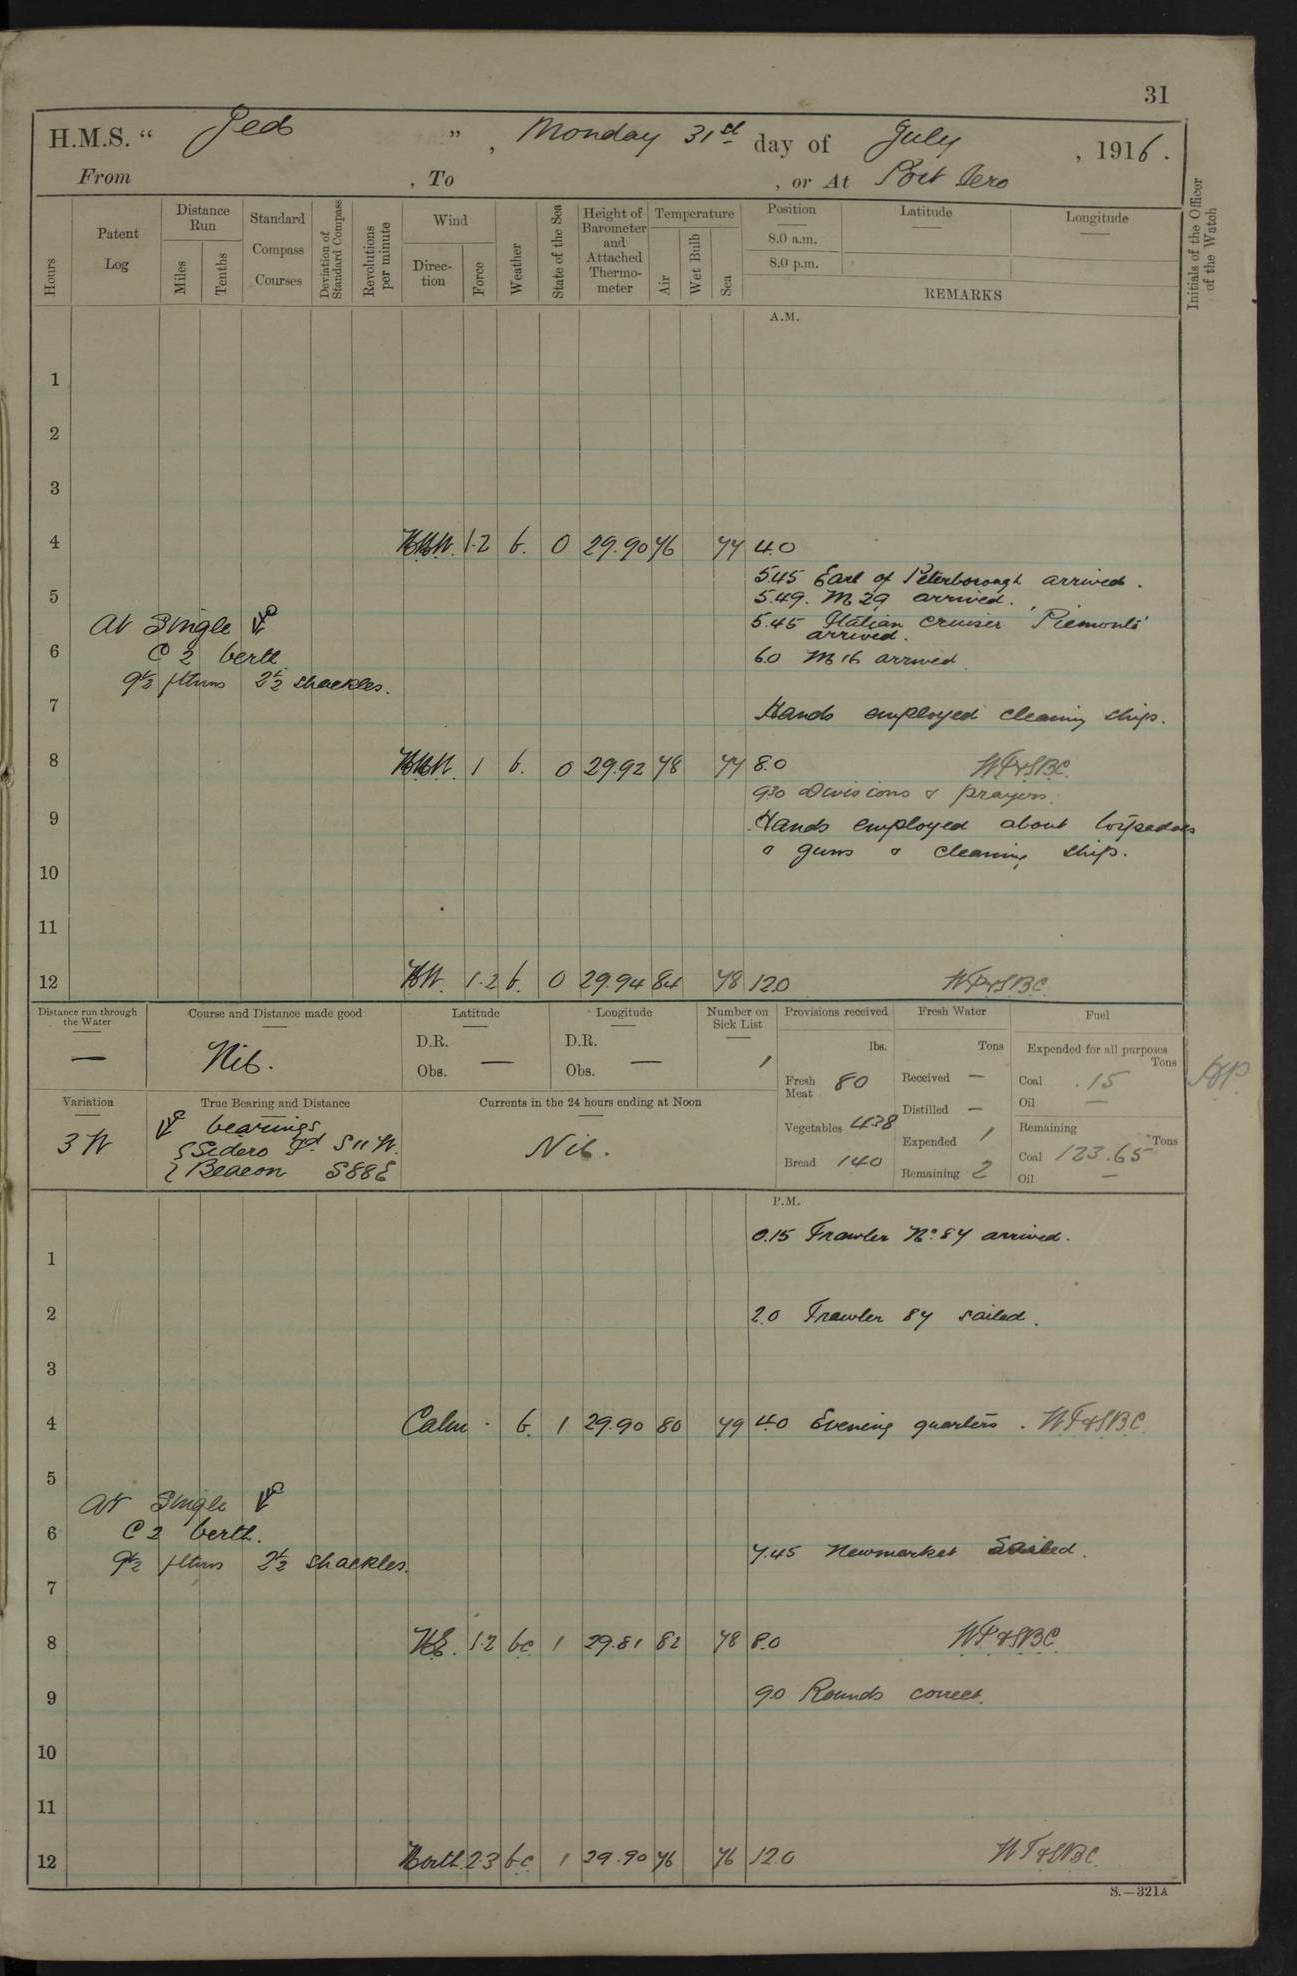 31
H.M.S. "Jed", Monday 31st day of July, 1916.
From , To , or At Port Iero
Hours
Patent Log
Distance Run
Miles
Tenths
Standard Compass Courses
Deviation of Standard Compass
Revolutions per minute
Wind
Direction
Force
Weather
State of the Sea
Height of Barometer and Attached Thermometer
Temperature
Air
Wet Bulb
Sea
Position
8.0 a.m.
8.0 p.m.
Latitude
Longitude
REMARKS
Initials of the Officer of the Watch
A.M.
1
2
3
4 NNW. 1.2 b. 0 29.90 76 77 4.0
5.45 Earl of Peterborough arrived.
5.49. M 29 arrived.
5
At Single
5.45 Italian Cruiser 'Piemonte'
arrived.
6 C 2 berth
6.0 M 16 arrived
9½ fthms 2½ shackles.
7 Hands employed cleaning ship.
8 NNW. 1 b. 0 29.92 78 77 8.0
9.30 Divisions & prayers.
9 Hands employed about torpedoes
& guns & cleaning ship.
10
11
12 NW. 1.2 b. 0 29.94 84 78 12.0
Distance run through the Water
—
Course and Distance made good
Nil.
Latitude
D.R.
Obs. —
Longitude
D.R.
Obs. —
Number on Sick List
1
Provisions received
lbs.
Fresh Meat 80
Vegetables 438
Bread 140
Fresh Water
Tons
Received —
Distilled —
Expended 1
Remaining 2
Fuel
Expended for all purposes
Tons
Coal .15
Oil —
Remaining
Tons
Coal 123.65
Oil —
Variation
3 W
True Bearing and Distance
bearings
{ Sidero Pd. S 11 W.
{ Beacon S 88 E
Currents in the 24 hours ending at Noon
Nil.
P.M.
0.15 Trawler No. 87 arrived.
1
2 2.0 Trawler 87 sailed.
3
4 Calm · b. 1 29.90 80 79 4.0 Evening quarters.
5
At Single
6 C 2 berth.
9½ fthms 2½ shackles.
7.45 Newmarket Sailed.
7
8 NE. 1.2 bc 1 29.81 82 78 8.0
9 9.0 Rounds correct.
10
11
12 North. 2.3 bc 1 29.90 76 76 12.0
S.—321A